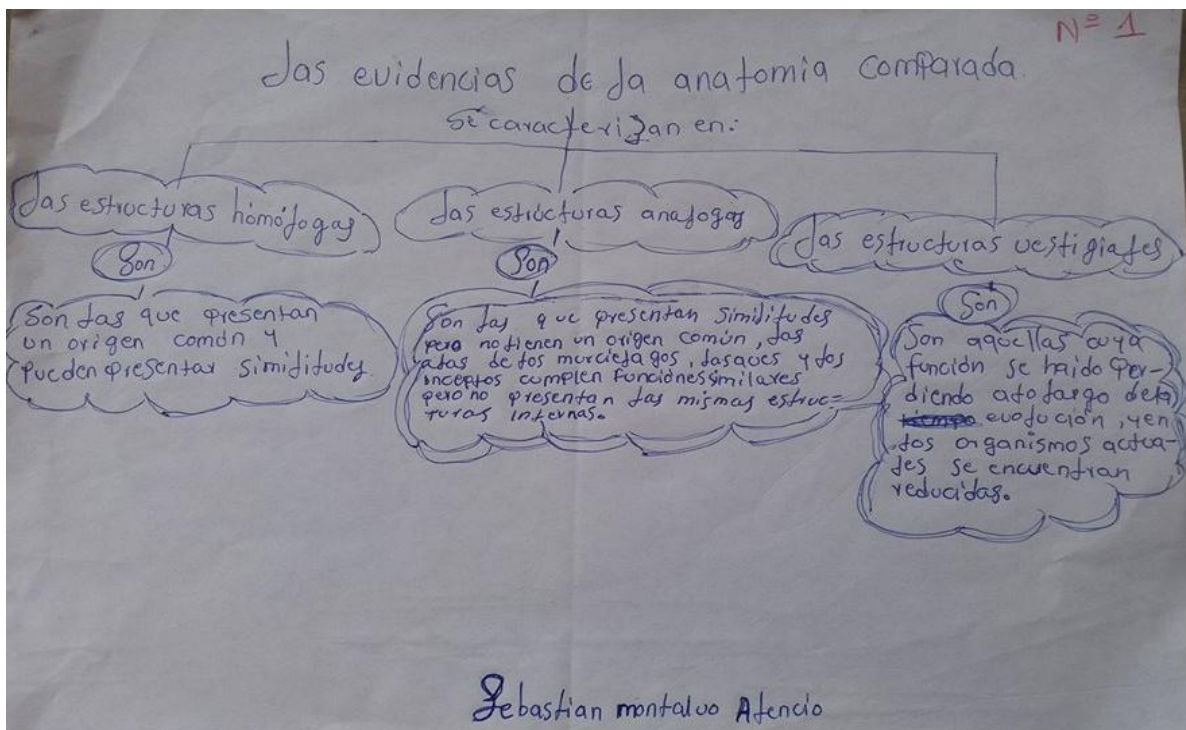 Nº 1
Las evidencias de la anatomia comparada.
Se caracterizan en:
Las estructuras homólogas
Son
Son las que presentan
un origen común y
pueden presentar similitudes.
Las estructuras analogas
Son
Son las que presentan similitudes
pero no tienen un origen común, las
alas de los murcielagos, las aves y los
inceptos cumplen funciones similares
pero no presentan las mismas estruc-
turas internas.
Las estructuras vestigiales
Son
Son aquellas cuya
función se ha ido per-
diendo a lo largo de la
evolución, y en
los organismos actua-
les se encuentran
reducidas.
Sebastian montalvo Atencio